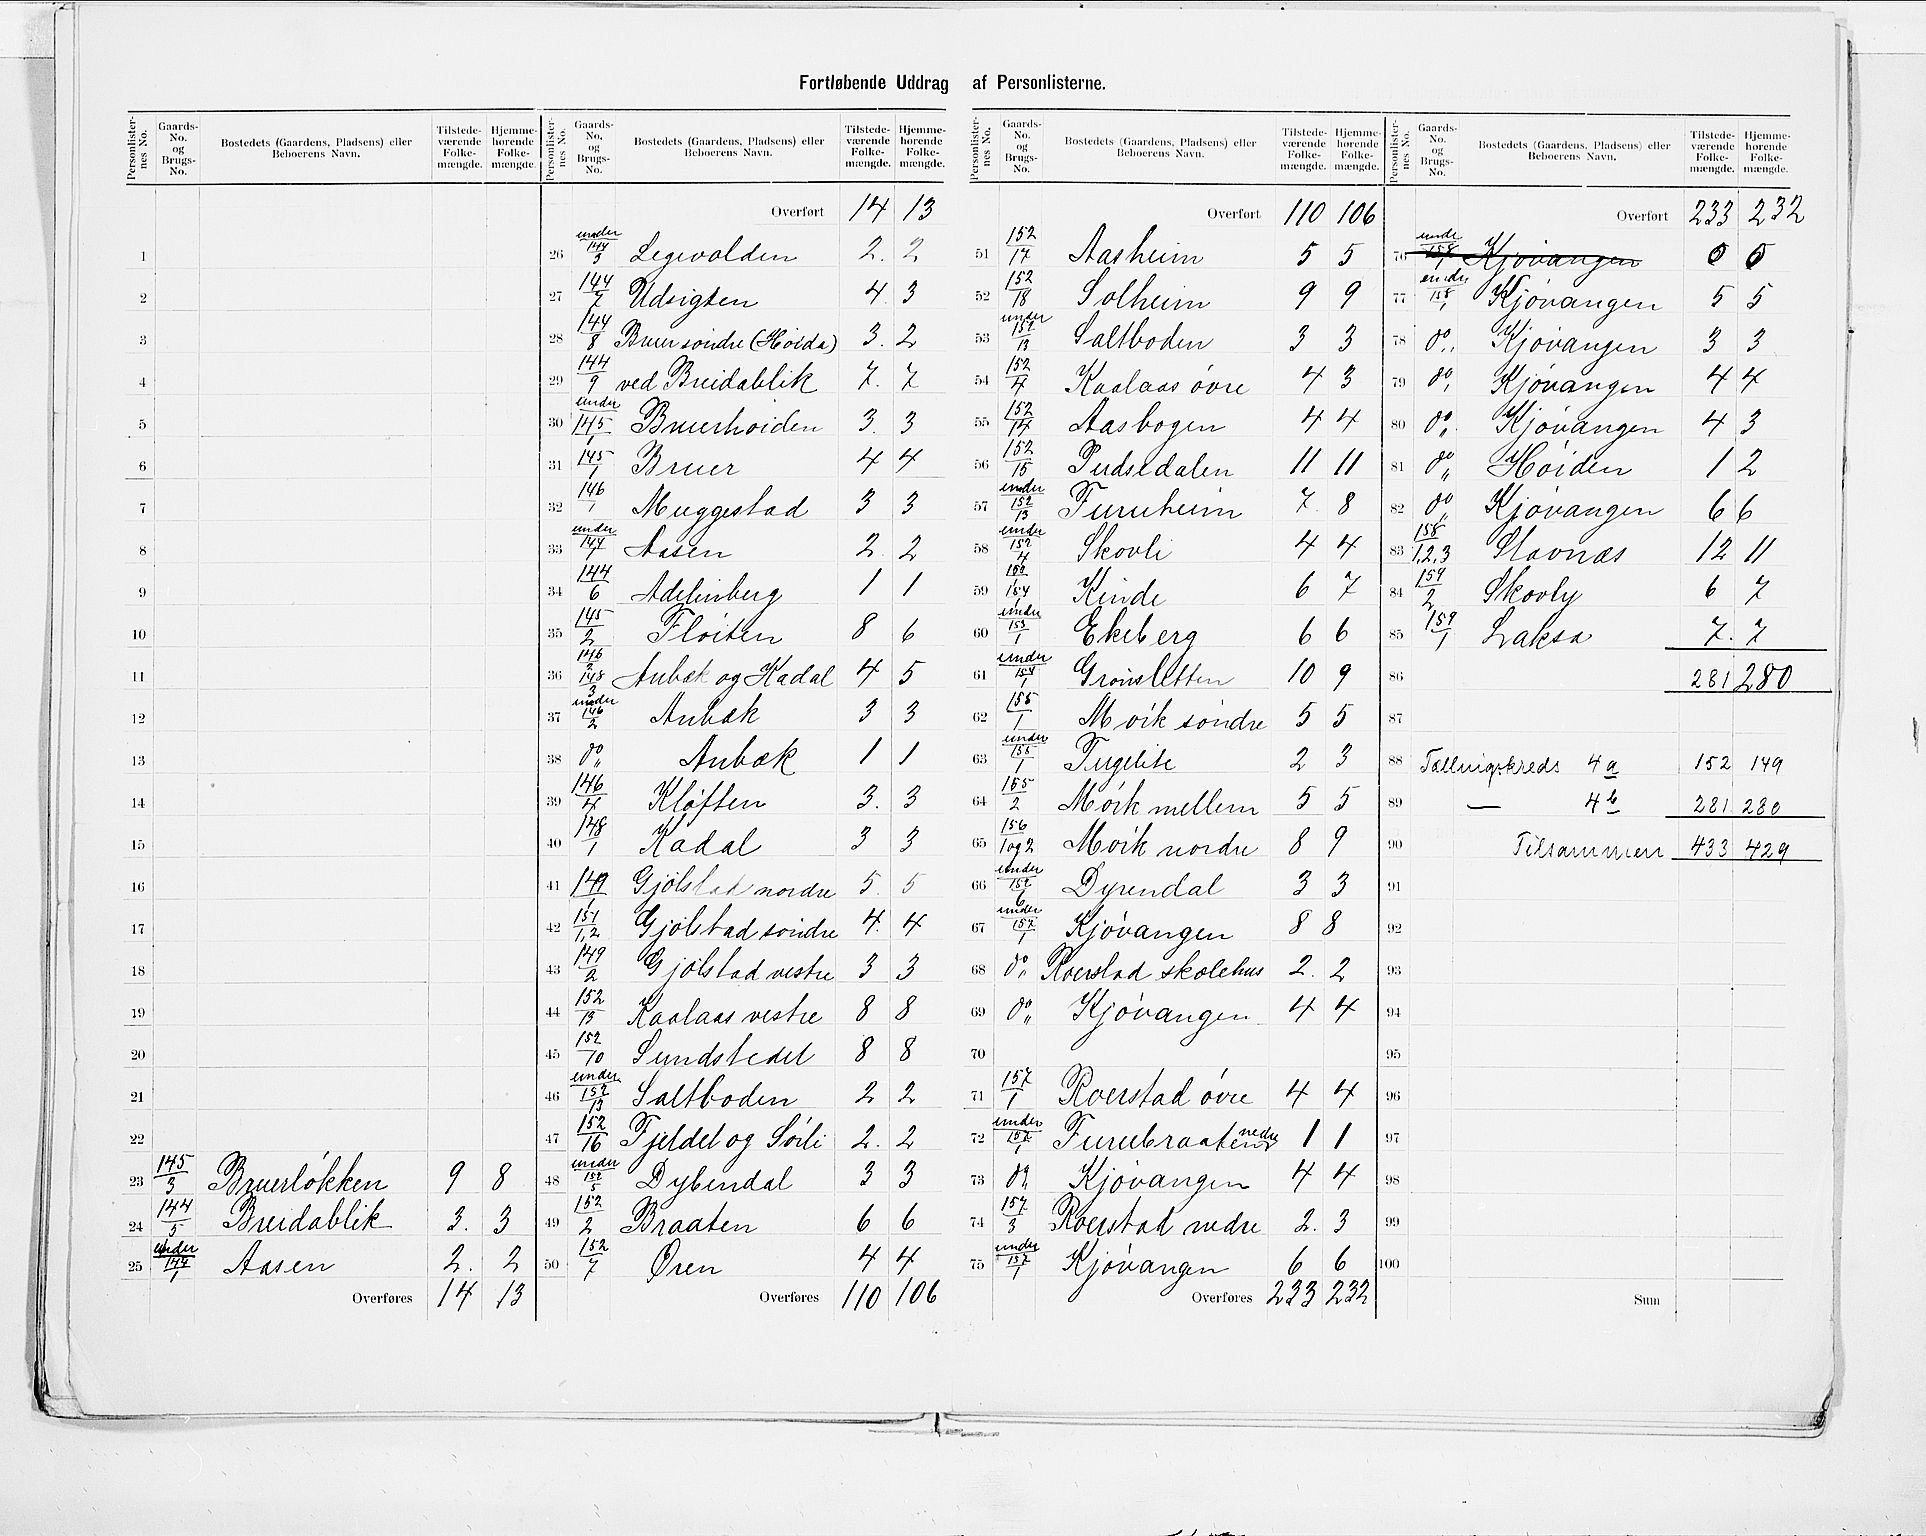 Fortløbende Uddrag af Personlisterne.
Personlister-nes No. Gaards-No. og Brugs-No. Bostedets (Gaardens, Pladsens) eller Beboerens Navn. Tilstede-værende Folke-mængde. Hjemme-hørende Folke-mængde.
1
2
3
4
5
6
7
8
9
10
11
12
13
14
15
16
17
18
19
20
21
22
23 145/3 Bruerløkken 9 8
24 144/5 Breidablik 3. 3
25 under 144/1 Aasen 2. 2
Overføres 14 13
Personlister-nes No. Gaards-No. og Brugs-No. Bostedets (Gaardens, Pladsens) eller Beboerens Navn. Tilstede-værende Folke-mængde. Hjemme-hørende Folke-mængde.
Overført 14 13
26 under 144/3 Legevolden 2. 2
27 144/7 Udsigten 4. 3
28 144/8 Bruer søndre (Høida) 3. 2
29 144/9 ved Breidablik 7. 7
30 under 145/1 Bruerhøiden 3. 3
31 145/1 Bruer 4 4
32 146/1 Muggestad 3 3
33 under 144/7 Aasen 2. 2
34 144/6 Adelenberg 1 1
35 145/2 Fløiten 8 6
36 146/2 148/3 Aubæk og Kadal 4 5
37 under 146/2 Aubæk 3 3
38 do „ Aubæk 1 1
39 146/4 Kløften 3. 3
40 148/1 Kadal 3 3
41 149/1 Gjølstad nordre 5. 5
42 151/1,2 Gjølstad søndre 4. 4
43 149/2 Gjølstad vestre 3 3
44 152/13 Kaalaas vestre 8 8
45 152/10 Sundstedet 8 8
46 under 152/13 Saltboden 2 2
47 152/16 Fjeldet og Sørli 2. 2
48 under 152/5 Dybendal 3 3
49 152/2 Braaten 6 6
50 152/7 Øren 4 4
Overføres 110 106
Personlister-nes No. Gaards-No. og Brugs-No. Bostedets (Gaardens, Pladsens) eller Beboerens Navn. Tilstede-værende Folke-mængde. Hjemme-hørende Folke-mængde.
Overført 110 106
51 152/17 Aasheim 5 5
52 152/18 Solheim 9 9
53 under 152/13 Saltboden 3 3
54 152/4 Kaalaas øvre 4 3
55 152/14 Aasbogen 4 4
56 152/15 Pudsedalen 11 11
57 under 152/13 Furuheim 7. 8
58 under 152/4 Skovli 4 4
59 Kinde 6 7
60 under 153/1 Ekeberg 6 6
61 under 154/1 Grønsletten 10 9
62 155/1 Mørk søndre 5 5
63 under 155/1 Fugelite 2 3
64 155/2 Mørk mellem 5 5
65 156/1 og 2 Mørk nordre 8 9
66 under 152/6 Dyrendal 3 3
67 under 157/1 Kjøvangen 8 8
68 do „ Roerstad skolehus 2. 2
69 do „ Kjøvangen 4 4
70
71 157/1 Roerstad øvre 4 4
72 under 157/1 Furubraaten nedre 1 1
73 do „ Kjøvangen 4 4
74 157/3 Roerstad nedre 2. 3
75 under 157/1 Kjøvangen 6 6
Overføres 233 232
Personlister-nes No. Gaards-No. og Brugs-No. Bostedets (Gaardens, Pladsens) eller Beboerens Navn. Tilstede-værende Folke-mængde. Hjemme-hørende Folke-mængde.
Overført 233 232
76 unde 158/1 Kjøvangen 0 0
77 under 158/1 Kjøvangen 5 5
78 do „ Kjøvangen 3 3
79 do „ Kjøvangen 4 4
80 do „ Kjøvangen 4 3
81 do „ Høiden 1 2
82 do „ Kjøvangen 6 6
83 158/1,2,3 Stavnæs 12 11
84 159/2 Skovly 6 7
85 159/1 Laksa 7. 7
86 281 280
87
88 Tællingskreds 4a 152 149
89 — 4b 281 280
90 Tilsammen 433 429
91
92
93
94
95
96
97
98
99
100
Sum